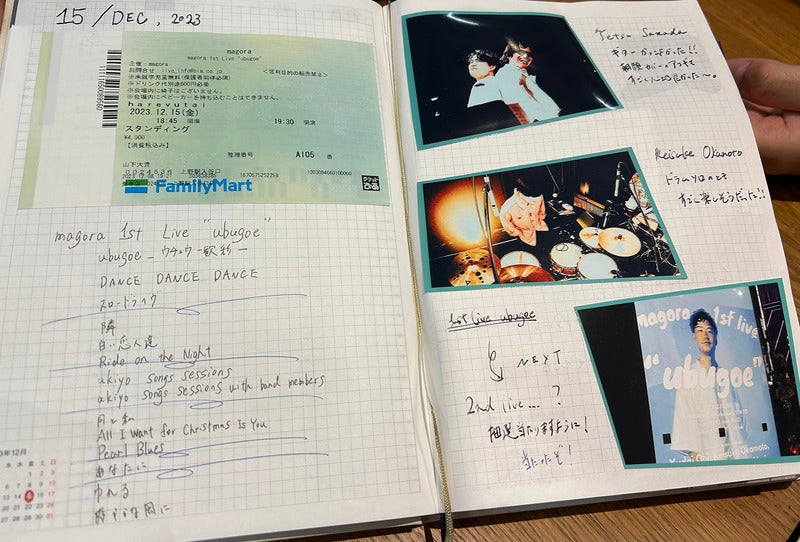 15/DEC, 2023
magora
magora 1st Live "ubugoe"
主催：magora
お問合せ：live_info@pia.co.jp <営利目的の転売禁止>
※未就学児童無料(保護者同伴必須)
※ドリンク代別途600円必要
※会場内に椅子はございません。
※会場内にベビーカーを持ち込むことはできません。
harevutai
2023.12.15(金)
18:45 開場 19:30 開演
スタンディング
¥4,900
【消費税込み】
整理番号 A105 番
山下大貴
上野駅入谷口
FamilyMart
チケットぴあ
magora 1st Live "ubugoe"
ubugoe
DANCE DANCE DANCE
スロードライブ
隣
白い恋人達
Ride on the Night
ukiyo songs sessions
ukiyo songs sessions with band members
月と私
All I Want for Christmas Is You
Pearl Blues
あなたに
ゆれる
静かな雨に
12月
木 水 金 土 日
ギターカッコよかった!!
Keisuke Okamoto
ドラムソロとても
すごく楽しそうだった!!
1st Live ubugoe
NEXT
2nd live...?
抽選当たりますように!
当たったぞ!
magora 1st live
"ubugoe"
Okamoto,